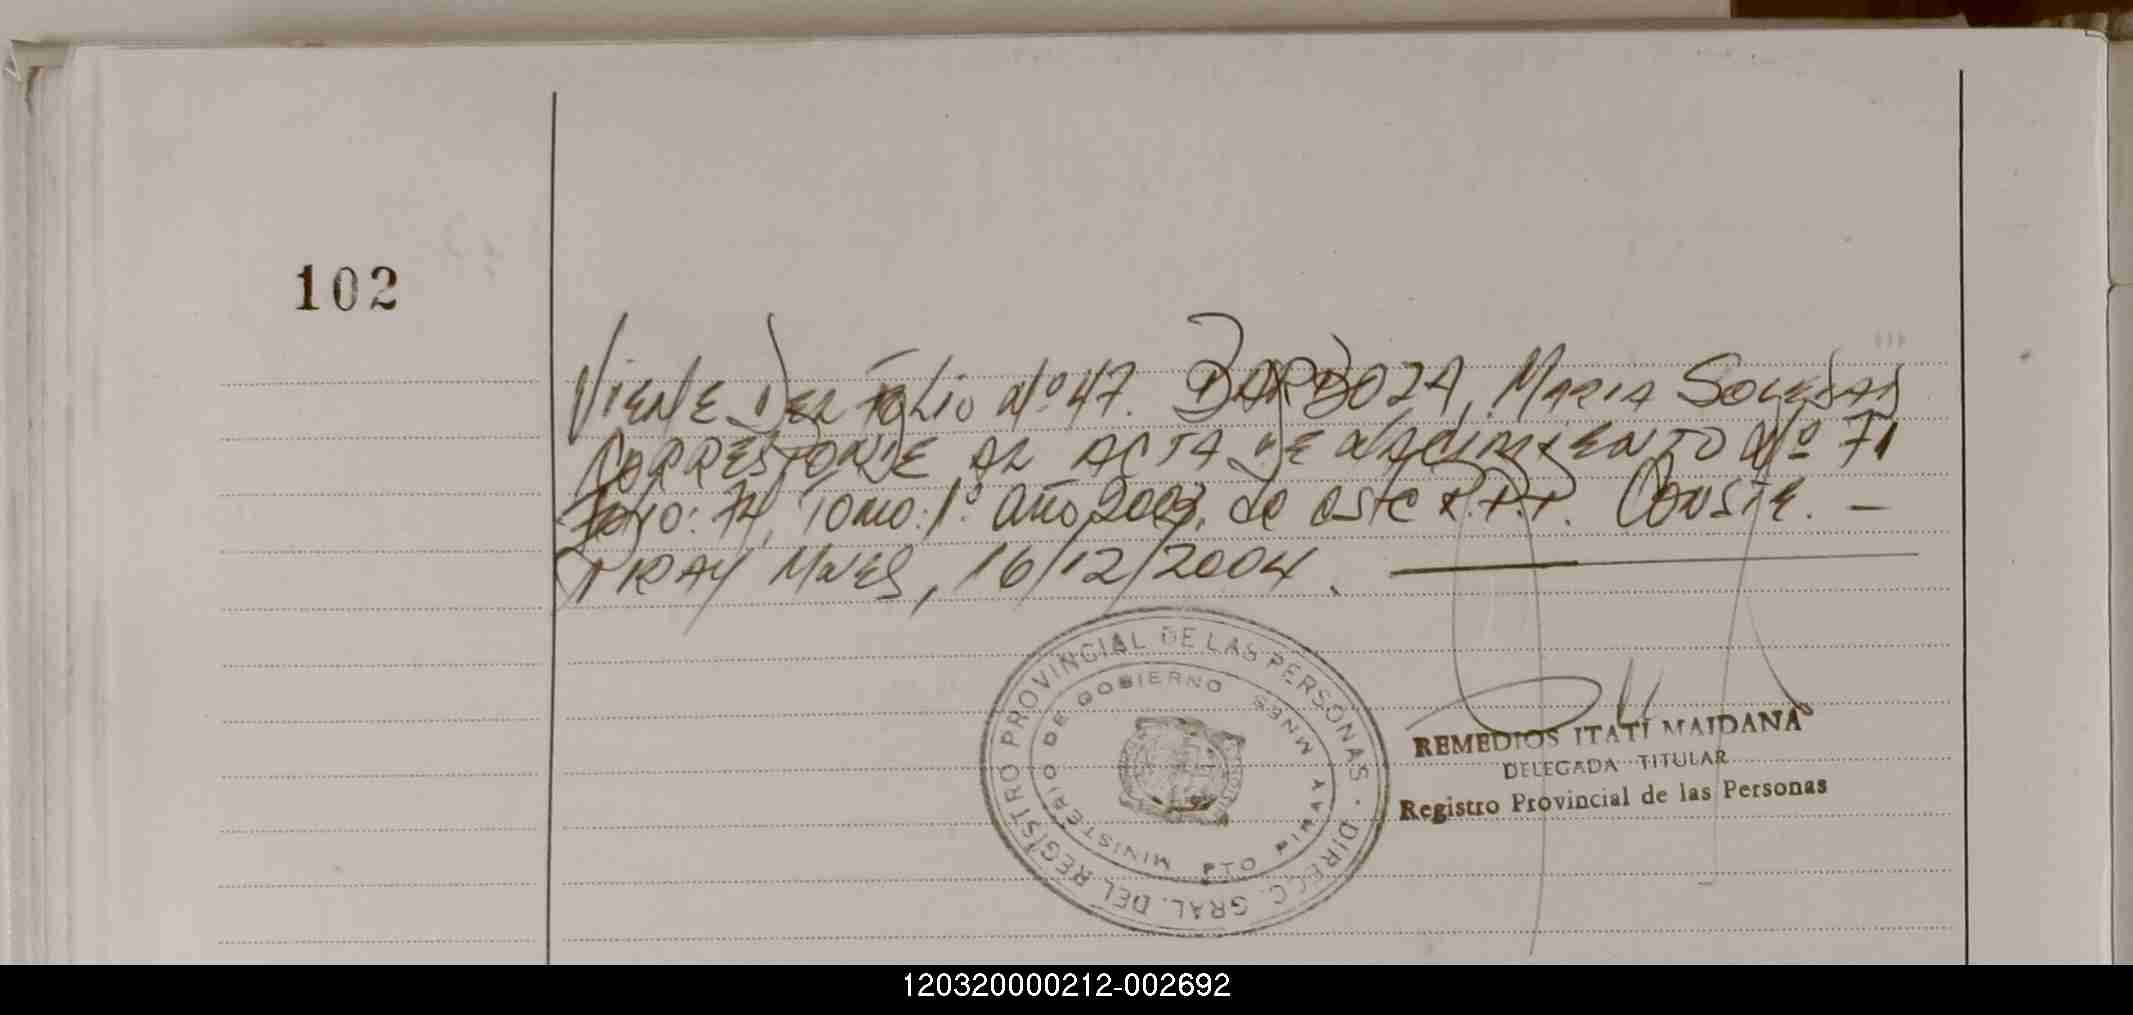 102
Viene Del Folio Nº 47. BARBOZA, Maria Soledad
Corresponde al Acta de Nacimiento Nº 71
Folio: 74, Tomo: 1º Año 2003, de este R.P.P. Conste. —
PIRAY MNES, 16/12/2004.
DIRECC. GRAL. DEL REGISTRO PROVINCIAL DE LAS PERSONAS
MINISTERIO DE GOBIERNO
PTO PIRAY MNES
REMEDIOS ITATÍ MAIDANA
DELEGADA TITULAR
Registro Provincial de las Personas
120320000212-002692